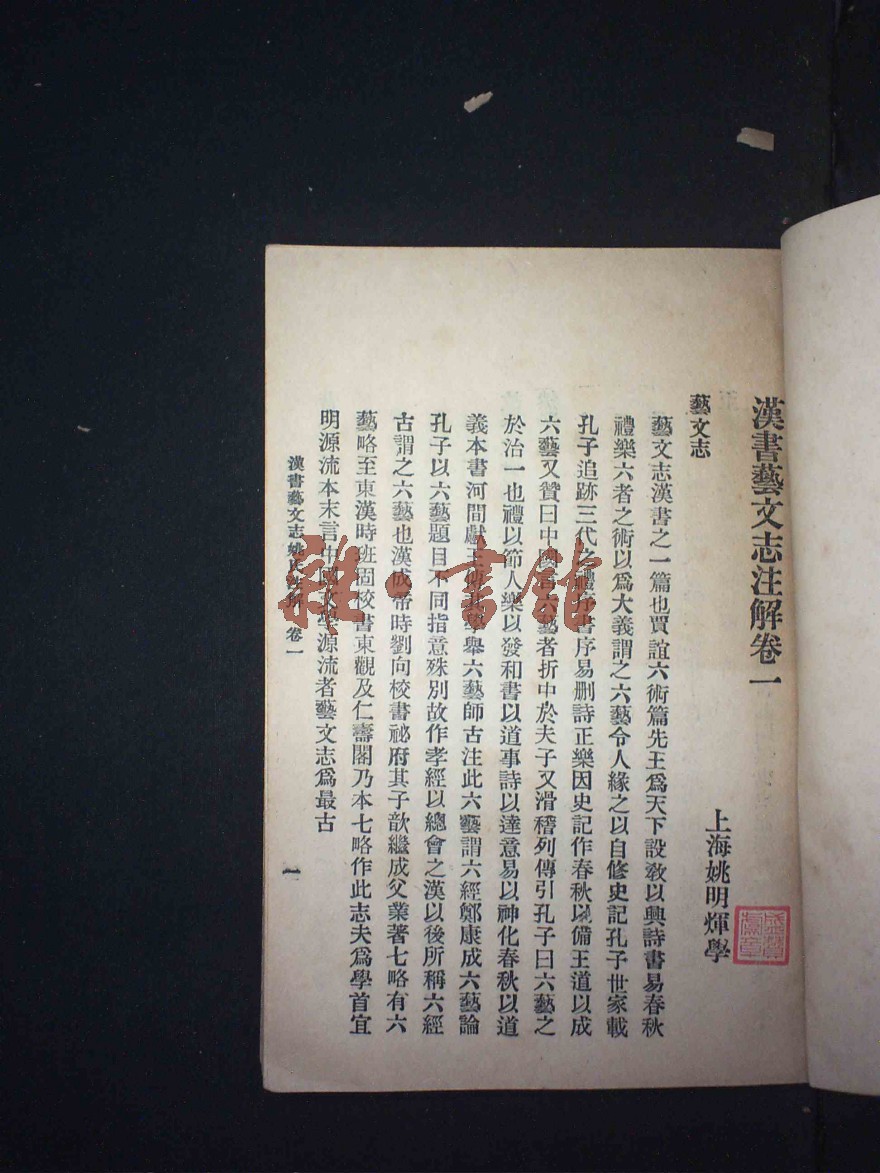 漢書藝文志注解卷一
上海姚明煇學
藝文志
藝文志漢書之一篇也賈誼六術篇先王爲天下設敎以興詩書易春秋
禮樂六者之術以爲大義謂之六藝令人緣之以自修史記孔子世家載
孔子追跡三代之禮序書序易删詩正樂因史記作春秋以備王道以成
六藝又贊曰中國言六藝者折中於夫子又滑稽列傳引孔子曰六藝之
於治一也禮以節人樂以發和書以道事詩以達意易以神化春秋以道
義本書河間獻王傳其學舉六藝師古注此六藝謂六經鄭康成六藝論
孔子以六藝題目不同指意殊別故作孝經以總會之漢以後所稱六經
古謂之六藝也漢成帝時劉向校書祕府其子歆繼成父業著七略有六
藝略至東漢時班固校書東觀及仁壽閣乃本七略作此志夫爲學首宜
明源流本末言中國文學源流者藝文志爲最古
漢書藝文志姚氏注解 卷一
一
雜·書館